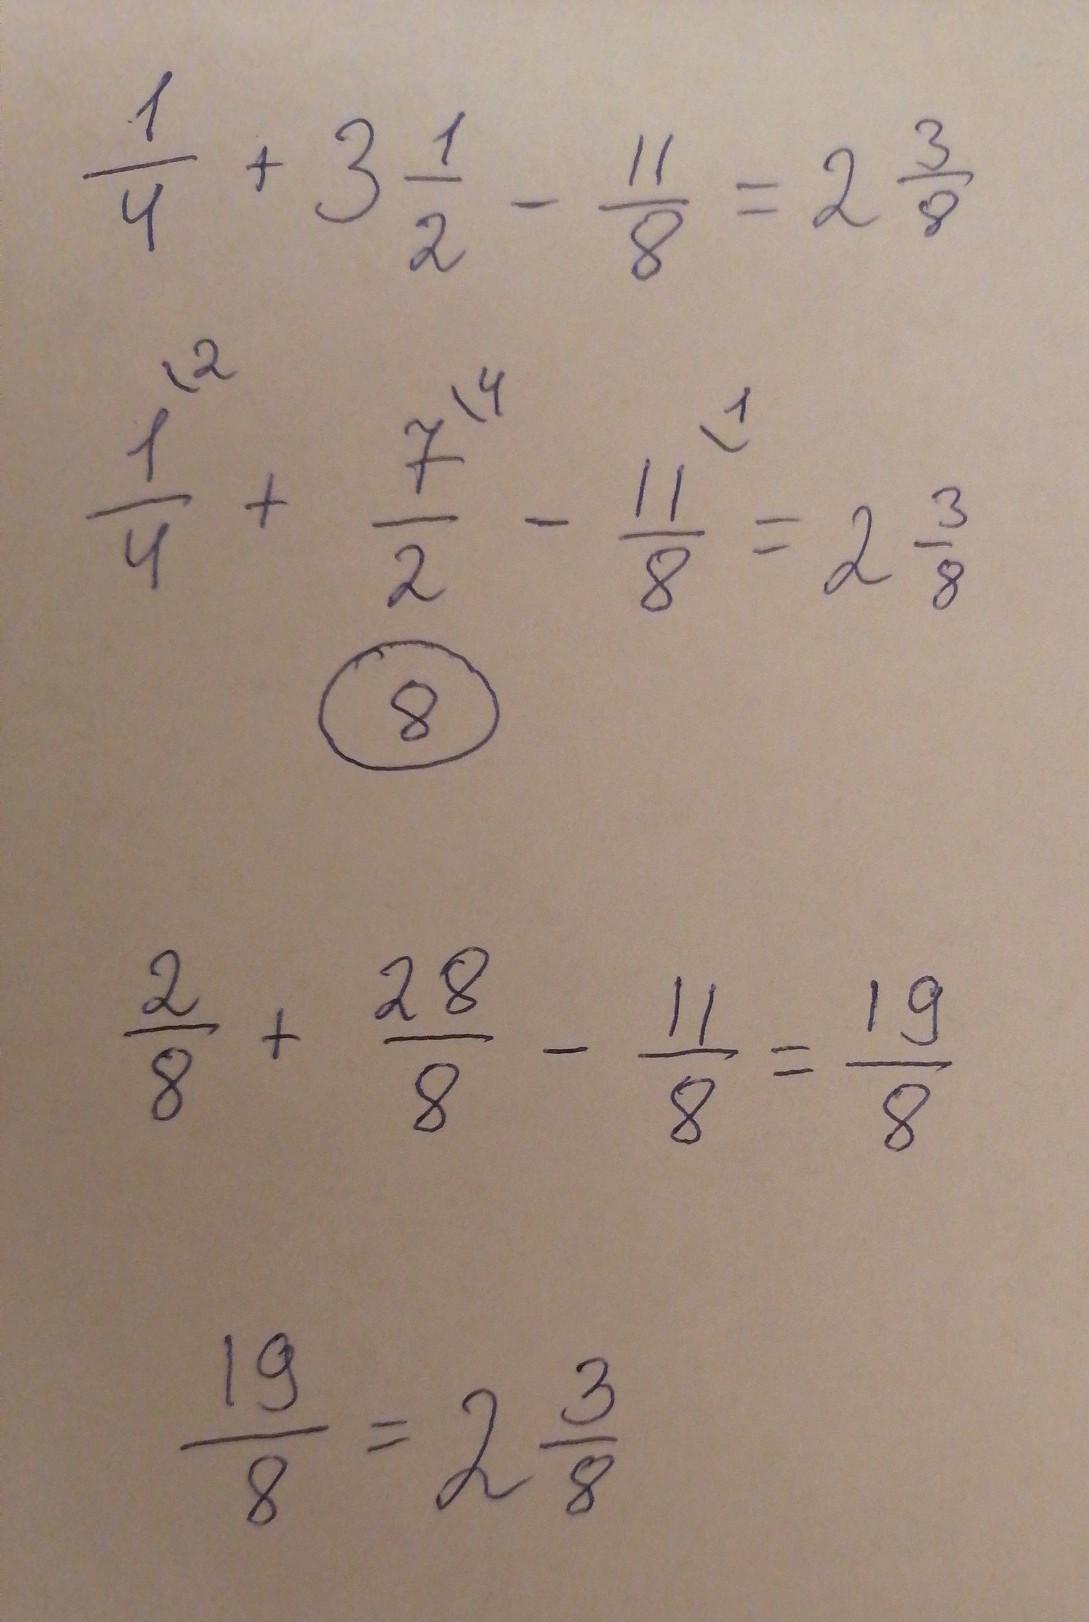 1/4 + 3 1/2 - 11/8 = 2 3/8
1\2/4 + 7\4/2 - 11\1/8 = 2 3/8
8
2/8 + 28/8 - 11/8 = 19/8
19/8 = 2 3/8